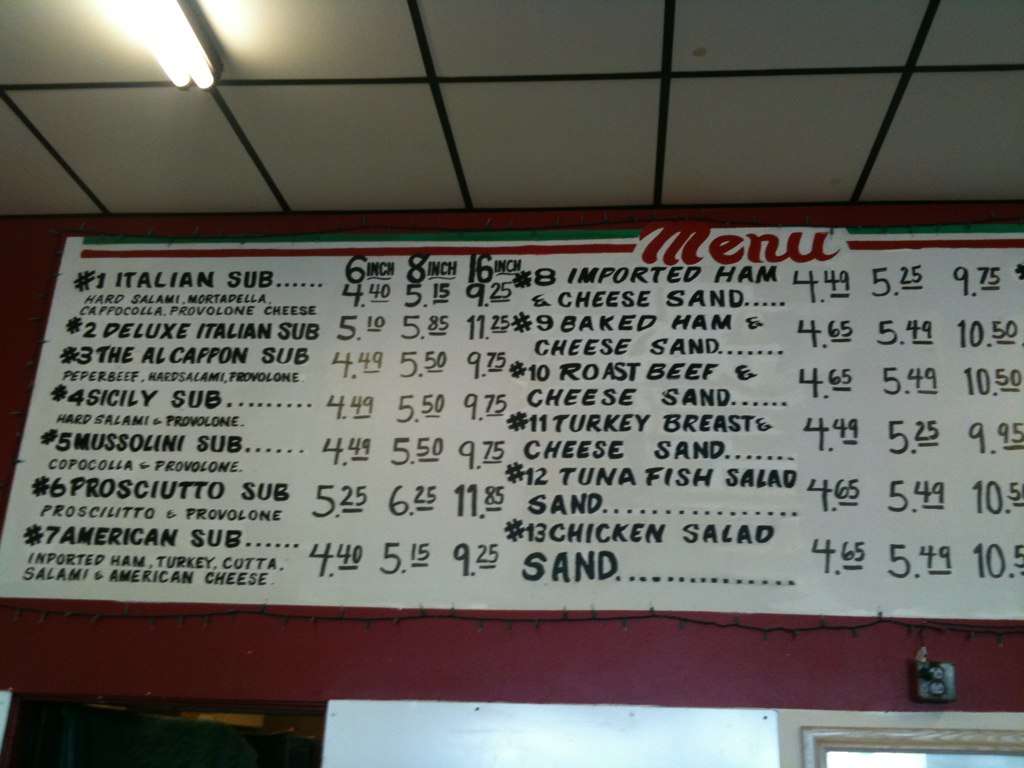 Menu
6 INCH 8 INCH 16 INCH
#1 ITALIAN SUB...... 4.40 5.15 9.25
HARD SALAMI, MORTADELLA,
CAPFOCOLLA, PROVOLONE CHEESE
#2 DELUXE ITALIAN SUB 5.10 5.85 11.25
#3 THE AL CAPPON SUB 4.49 5.50 9.75
PEPERBEEF, HARDSALAMI, PROVOLONE
#4 SICILY SUB.......... 4.49 5.50 9.75
HARD SALAMI & PROVOLONE.
#5 MUSSOLINI SUB...... 4.49 5.50 9.75
COPOCOLLA & PROVOLONE.
#6 PROSCIUTTO SUB 5.25 6.25 11.85
PROSCILITTO & PROVOLONE
#7 AMERICAN SUB...... 4.40 5.15 9.25
INPORTED HAM, TURKEY, COTTA,
SALAMI & AMERICAN CHEESE.
#8 IMPORTED HAM 4.49 5.25 9.75
& CHEESE SAND.....
#9 BAKED HAM & 4.65 5.49 10.50
CHEESE SAND.......
#10 ROAST BEEF & 4.65 5.49 10.50
CHEESE SAND......
#11 TURKEY BREAST & 4.49 5.25 9.95
CHEESE SAND.......
#12 TUNA FISH SALAD 4.65 5.49 10.5
SAND.................
#13 CHICKEN SALAD 4.65 5.49 10.5
SAND...............
#